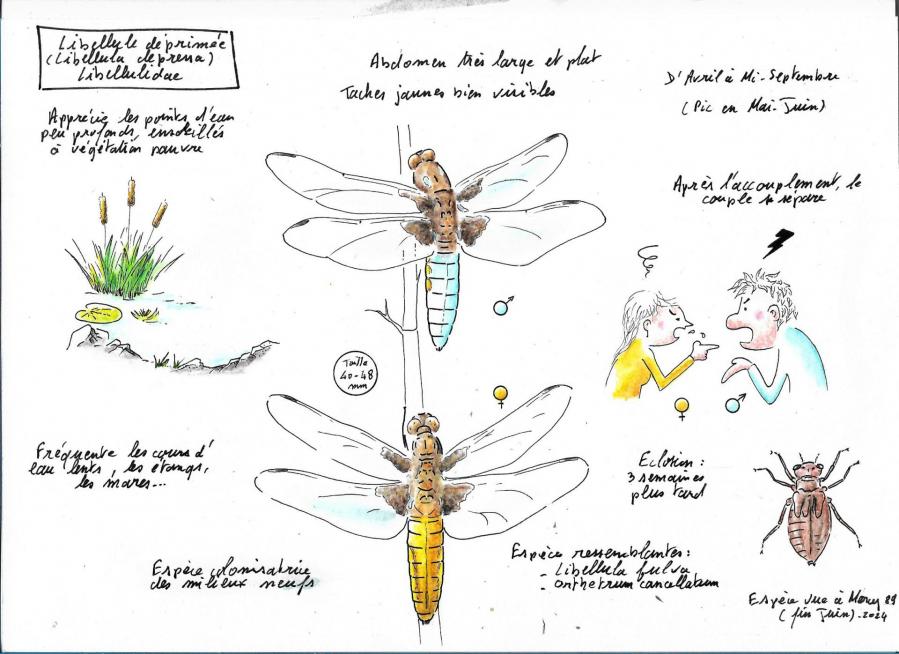 Libellule déprimée
(Libellula depressa)
Libellulidae
Abdomen très large et plat
Taches jaunes bien visibles
D'Avril à Mi-Septembre
(Pic en Mai-Juin)
Apprécie les points d'eau
peu profonds, ensoleillés
à végétation pauvre
Après l'accouplement, le
couple se sépare
♂
Taille
40-48
mm
♀
♀ ♂
Fréquente les cours d'
eau lents, les étangs,
les mares...
Eclosion :
3 semaines
plus tard
Espèce colonisatrice
des milieux neufs
Espèce ressemblantes :
- Libellula fulva
- Orthetrum cancellatum
Espèce vue à 89
(fin Juin).2024